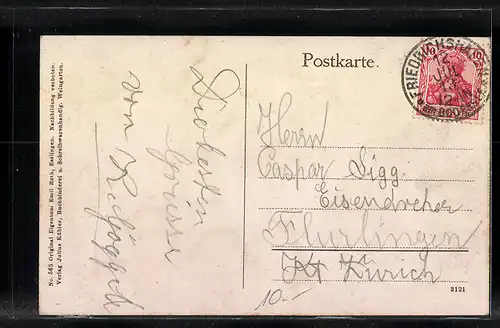 Postkarte.
No. 565 Original Eigentum: Emil Roth, Esslingen. Nachbildung verboten.
Verlag Julius Köhler, Buchbinderei u. Schreibwarenhandlg. Weingarten.
Die besten
Grüsse
von
FRIEDRICHSHAFEN
12
JUL
12
10
10
Herrn
Caspar Sigg
Eisendreher
Flurlingen
Kt Zürich
10.-
3121